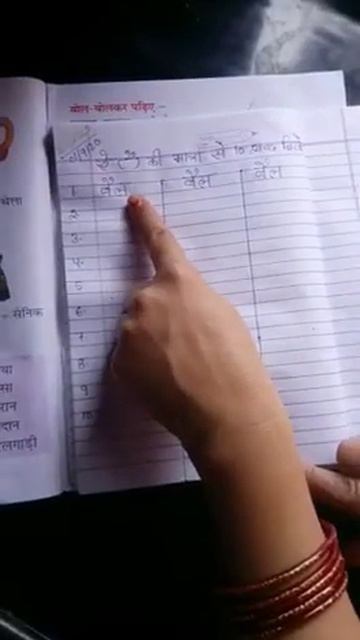 बोल-बोलकर पढ़िए -
ऐ-ै की मात्रा से 10 शब्द लिखे
1 बैल बैल बैल
2.
3.
4.
5
6.
7
8
9
10
थैला
- सैनिक
दान
लगाड़ी